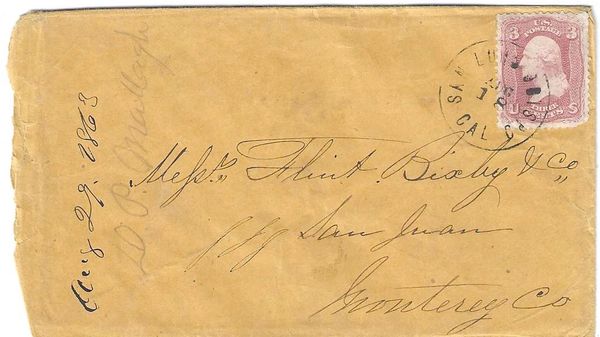 Aug 29. 1863
D. P. Mallagh
SAN LUIS OBISPO
AUG
18
CAL
U.S. POSTAGE
3 3
THREE CENTS
U S
Messrs. Flint. Bixby & Co,,
San Juan
Monterey Co